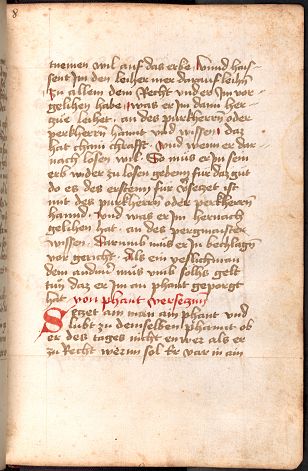 8
nemen wil auf das erbe / vnnd hais-
sent Im den leiher mer darauf leihn
Zu allem dem Recht vnd er Im vor-
gelihen habe / was er Im dann her-
gue leihet / an des purkherrn oder
perkherrn hannt vnd wissen / daz
hat chain chrafft / vnd wenn er dar-
nach losen wil / So mus er Im sein
erb wider zu losen geben fur daz gut
do es des ersten fur versetzet ist
mit des purkherrn oder perkherrn
hannd / vnd was er Im hernach
gelihen hat / an des pergmaister
wissen / darumb mus er Im bechlagn
vor gericht / Als ein yeslich man
dem andern mus vmb solhs gelt
tun daz er Im an phant geporgt
hat / von phant versetzung
Seczet ain man ain phant vnd
lubt zu demselben phannt ob
er des tages nicht en wer als er
zu Recht wernn sol Er var in ain